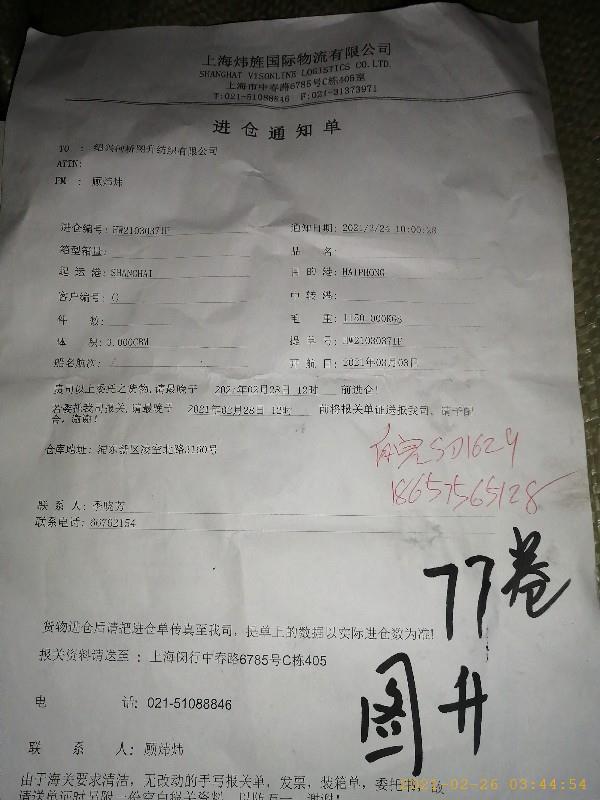 上海炜旌国际物流有限公司
SHANGHAI VISONLINE LOGISTICS CO.LTD.
上海市中春路6785号C栋405室
T:021-51088846 F:021-31373971
进仓通知单
TO : 绍兴柯桥图升纺织有限公司
ATTN:
FM : 顾炜炜
进仓编号: HW2103037HP 通知日期: 2021/2/24 10:00:28
箱型箱量: 品 名:
起运港: SHANGHAI 目的港: HAIPHONG
客户编号: G 中转港:
件 数: 毛 重: 1150.000KGS
体 积: 3.000CBM 提单号: HW2103037HP
船名航次: / 开航日: 2021年03月03日
贵司以上委托之货物,请最晚于 2021年02月28日 12时 前进仓!
若委托我司报关,请最晚于 2021年02月28日 12时 前将报关单证送报我司、请予配
合,谢谢!
仓库地址: 浦东新区凌空北路3160号
SD1629
18657565128
联系人: 季晓芳
联系电话: 66762154
77卷
货物进仓后请把进仓单传真至我司, 提单上的数据以实际进仓数为准!
报关资料请送至 : 上海闵行中春路6785号C栋405
图升
电 话: 021-51088846
联 系 人: 顾炜炜
由于海关要求清洁, 无改动的手写报关单, 发票, 装箱单, 委托书
2021-02-26 03:44:54